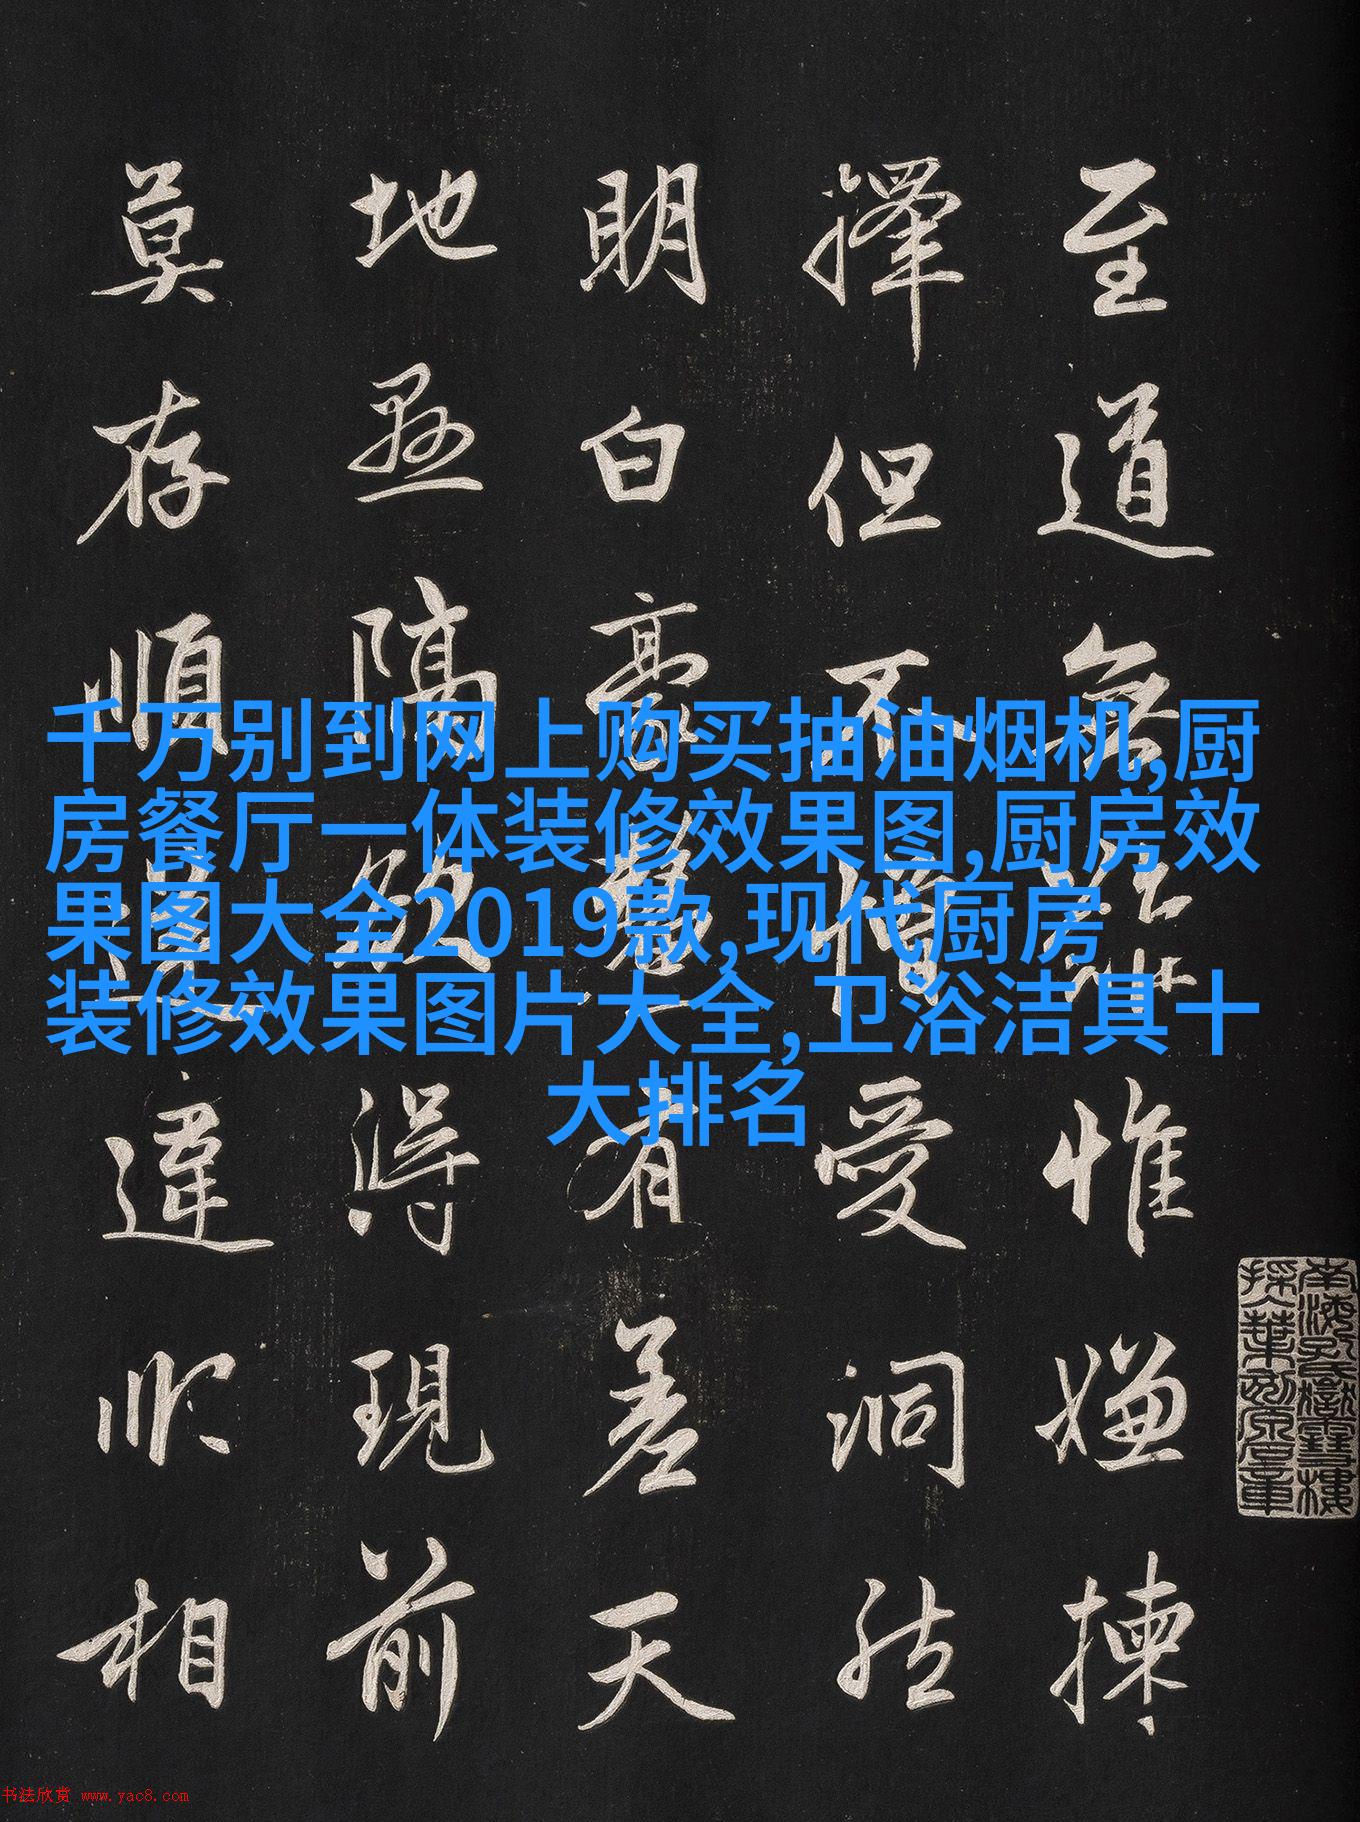 至道無難惟嫌揀
擇但不憎愛洞然
明白毫釐有差天
地懸隔欲得現前
莫存順逆違順相
千万别到网上购买抽油烟机,厨
房餐厅一体装修效果图,厨房效
果图大全2019款,现代厨房
装修效果图片大全,卫浴洁具十
大排名
南海孔氏嶽雪樓
书法欣赏 www.yac8.com